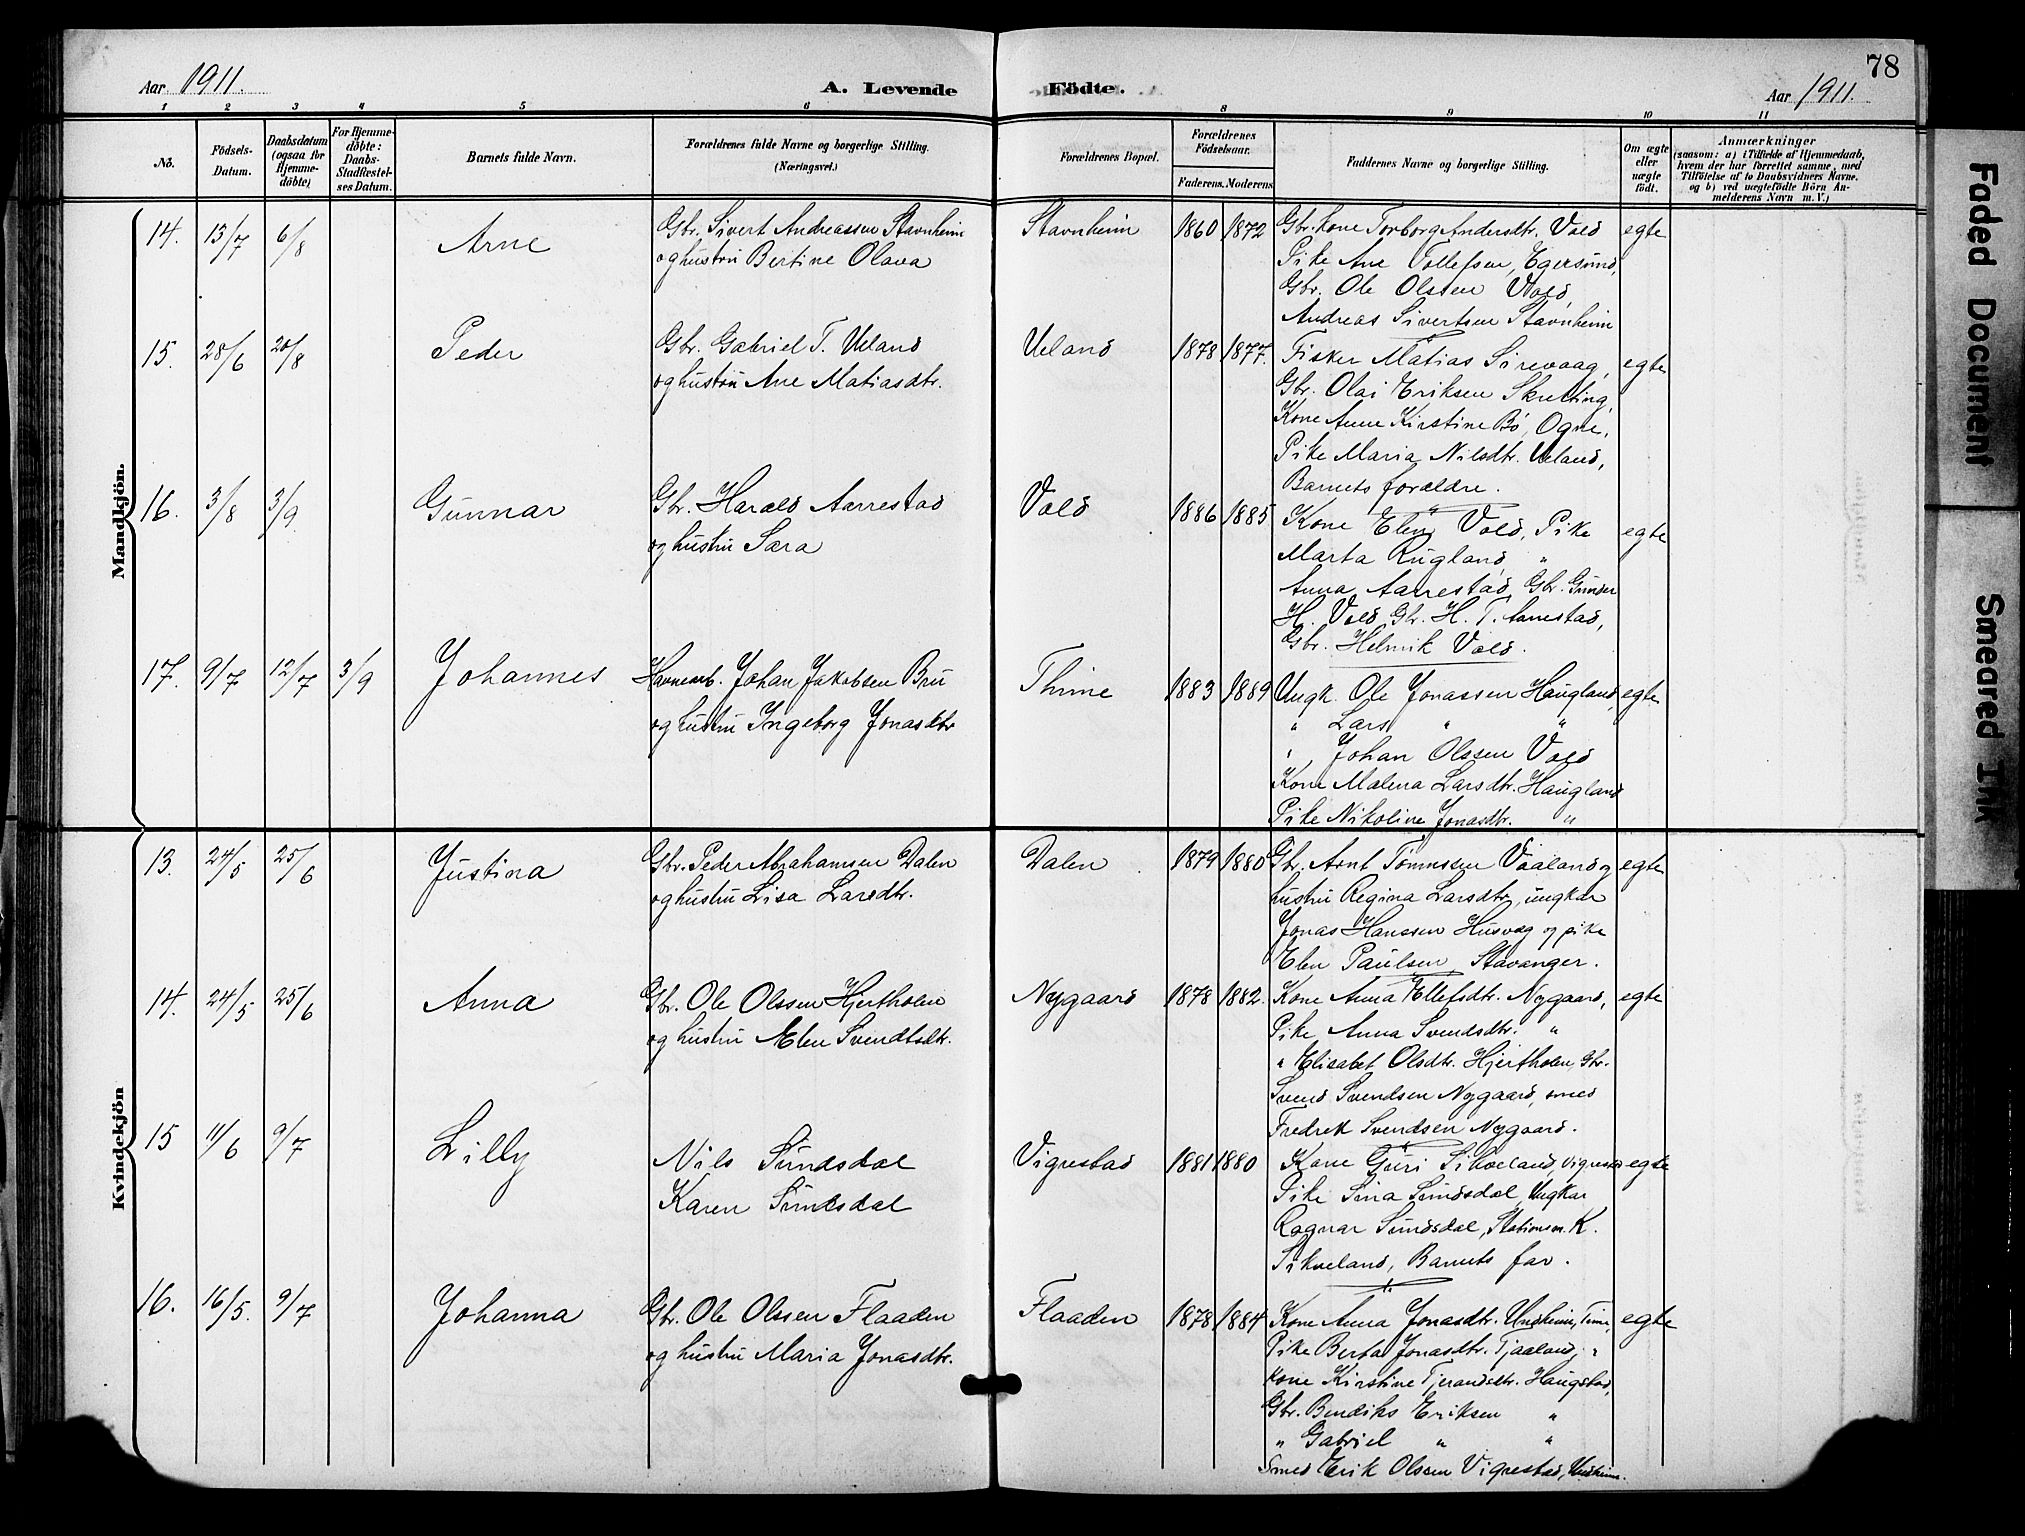 78
Aar 1911.
A. Levende
Födte.
Aar 1911.
1 2 3 4 5 6 8 9 10 11
No.
Födsels-Datum.
Daabsdatum (ogsaa for Hjemme-döbte)
For Hjemme-döbte: Daabs-Stadfæstel-ses Datum.
Barnets fulde Navn.
Forældrenes fulde Navne og borgerlige Stilling.
(Næringsvei.)
Forældrenes Bopæl.
Forældrenes Födselsaar.
Faderens. Moderens
Faddernes Navne og borgerlige Stilling.
Om ægte eller uægte födt.
Anmærkninger
(saasom: a) i Tilfælde af Hjemmedaab,
hvem der har forrettet samme, med
Tilföielse af to Daabsvidners Navne.
og b) ved uægtefödte Börn An-
melderens Navn m. V.)
Mandkjön.
14. 15/7 6/8 Arne
Gbr. Sivert Andreassen Stavnheim
og hustru Bertine Olava
Stavnheim 1860 1872
Gbr. kone Torborg Andersdtr. Vold
Pike Ane Tollefsen, Egersund,
Gbr. Ole Olsen Vold,
Andreas Sivertsen Stavnheim
egte
15. 28/6 20/8 Peder
Gbr. Gabriel T. Ueland
og hustru Ane Matiasdtr.
Ueland 1878 1877.
Fisker Matias Sirevaag,
Gbr. Olai Eriksen Skretting,
Kone Anne Kirstine Bö, Ogne,
Pike Maria Nilsdtr. Ueland,
Barnets forældre.
egte
16. 3/8 3/9. Gunnar
Gbr. Harald Aarrestad
og hustru Sara
Vold 1886 1885
Kone Elen Vold, Pike
Marta Rugland, "
Anna Aarrestad, Gbr. Gunder
H. Vold, Gbr. H. T. Aarrestad,
Gbr. Helmik Vold.
egte
17. 9/7 12/7 3/9 Johannes
Havnearb. Johan Jakobsen Bru
og hustru Ingeborg Jonasdtr
Thime 1883 1889
Ungk. Ole Jonassen Haugland,
" Lars " "
" Johan Olssen Vold
Kone Malena Larsdtr. Haugland
Pike Nikoline Jonasdtr. "
egte
Kvindekjön
13. 24/5 25/6 Justina
Gbr. Peder Abrahamsen Dalen
og hustru Lisa Larsdtr.
Dalen 1879 1880
Gbr. Arnt Tönnessen Vaaland og
hustru Regina Larsdtr, ungkar
Jonas Hanssen Husvæg og pike
Elen Paulsen, Stavanger.
egte
14. 24/5 25/6 Anna
Gbr. Ole Olssen Hjertholen
og hustru Elen Svendsdtr.
Nygaard 1878 1882.
Kone Anna Ellefsdtr. Nygaard,
Pike Anna Svendsdtr. "
" Elisabet Olsdtr. Hjertholen, Gbr.
Svend Svendsen Nygaard, smed
Fredrek Svendsen Nygaard.
egte
15 11/6 9/7 Lilly
Nils Sundsdal
Karen Sundsdal
Vigrestad 1881 1880
Kone Guri Sikveland, Vigrestad
Pike Sina Sundsdal, Ungkar
Ragnar Sundsdal, Stationsm K.
Sikveland, Barnets far.
egte
16. 16/5. 9/7 Johanna
Gbr. Ole Olssen Flaaden
og hustru Maria Jonasdtr.
Flaaden 1878 1884
Kone Anna Jonasdtr. Undheim, Time,
Pike Berta Jonasdtr. Tjaaland, "
Kone Kirstine Tjerandsdtr. Haugstad,
Gbr. Bendiks Eriksen "
" Gabriel " "
Smed Erik Olssen Vigrestad, Undheim.
egte
Faded Document
Smeared Ink